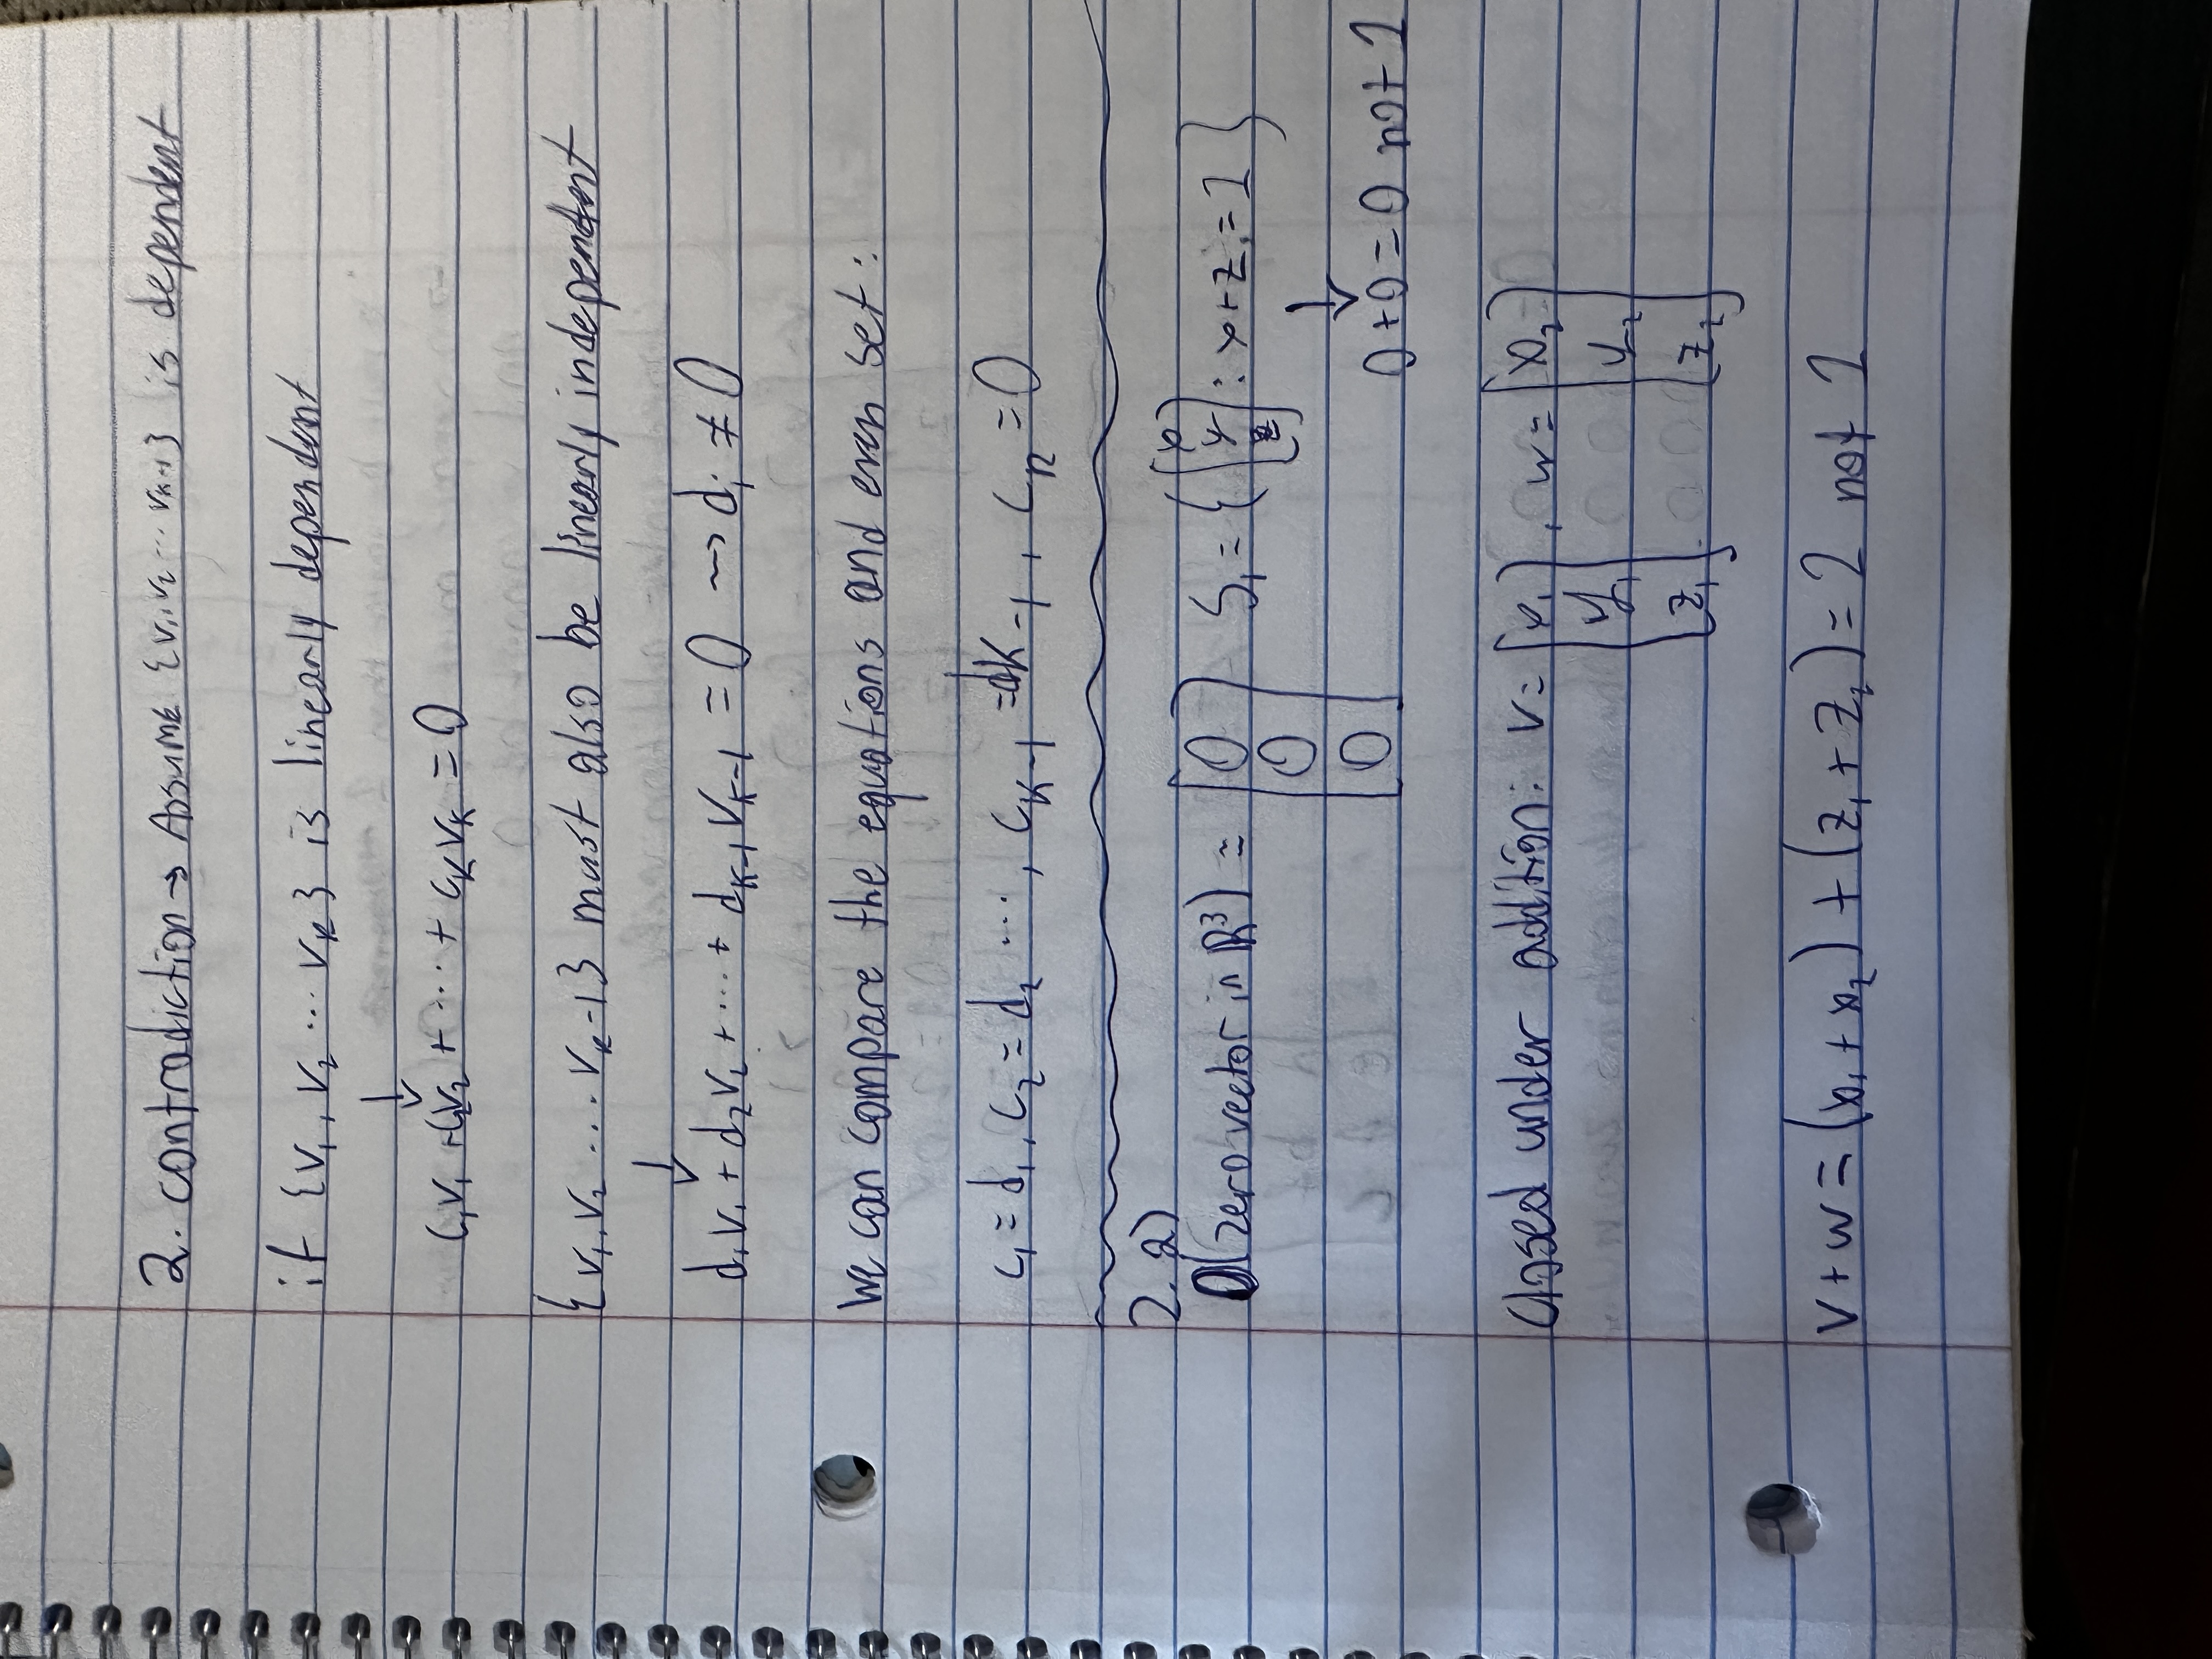 2. contradiction → Assume {v₁, v₂ ... vₖ₋₁} is dependent
if {v₁, v₂ ... vₖ} is linearly dependent
↓
c₁v₁ + c₂v₂ + ... + cₖvₖ = 0
{v₁, v₂ ... vₖ-1} must also be linearly independent
↓
d₁v₁ + d₂v₂ + ... + dₖ₋₁vₖ₋₁ = 0 → dᵢ ≠ 0
We can compare the equations and even set:
c₁ = d₁, c₂ = d₂ ..., cₖ₋₁ = dk-1, cₖ = 0
2. a)
0(zero vector in R³) = [0 0 0] S₁ = {[x y z] : x+z = 1}
↓
0+0=0 not 1
Closed under addition: v = [x₁ y₁ z₁], w = [x₂ y₂ z₂]
v+w = (x₁ + x₂) + (z₁ + z₂) = 2 not 1